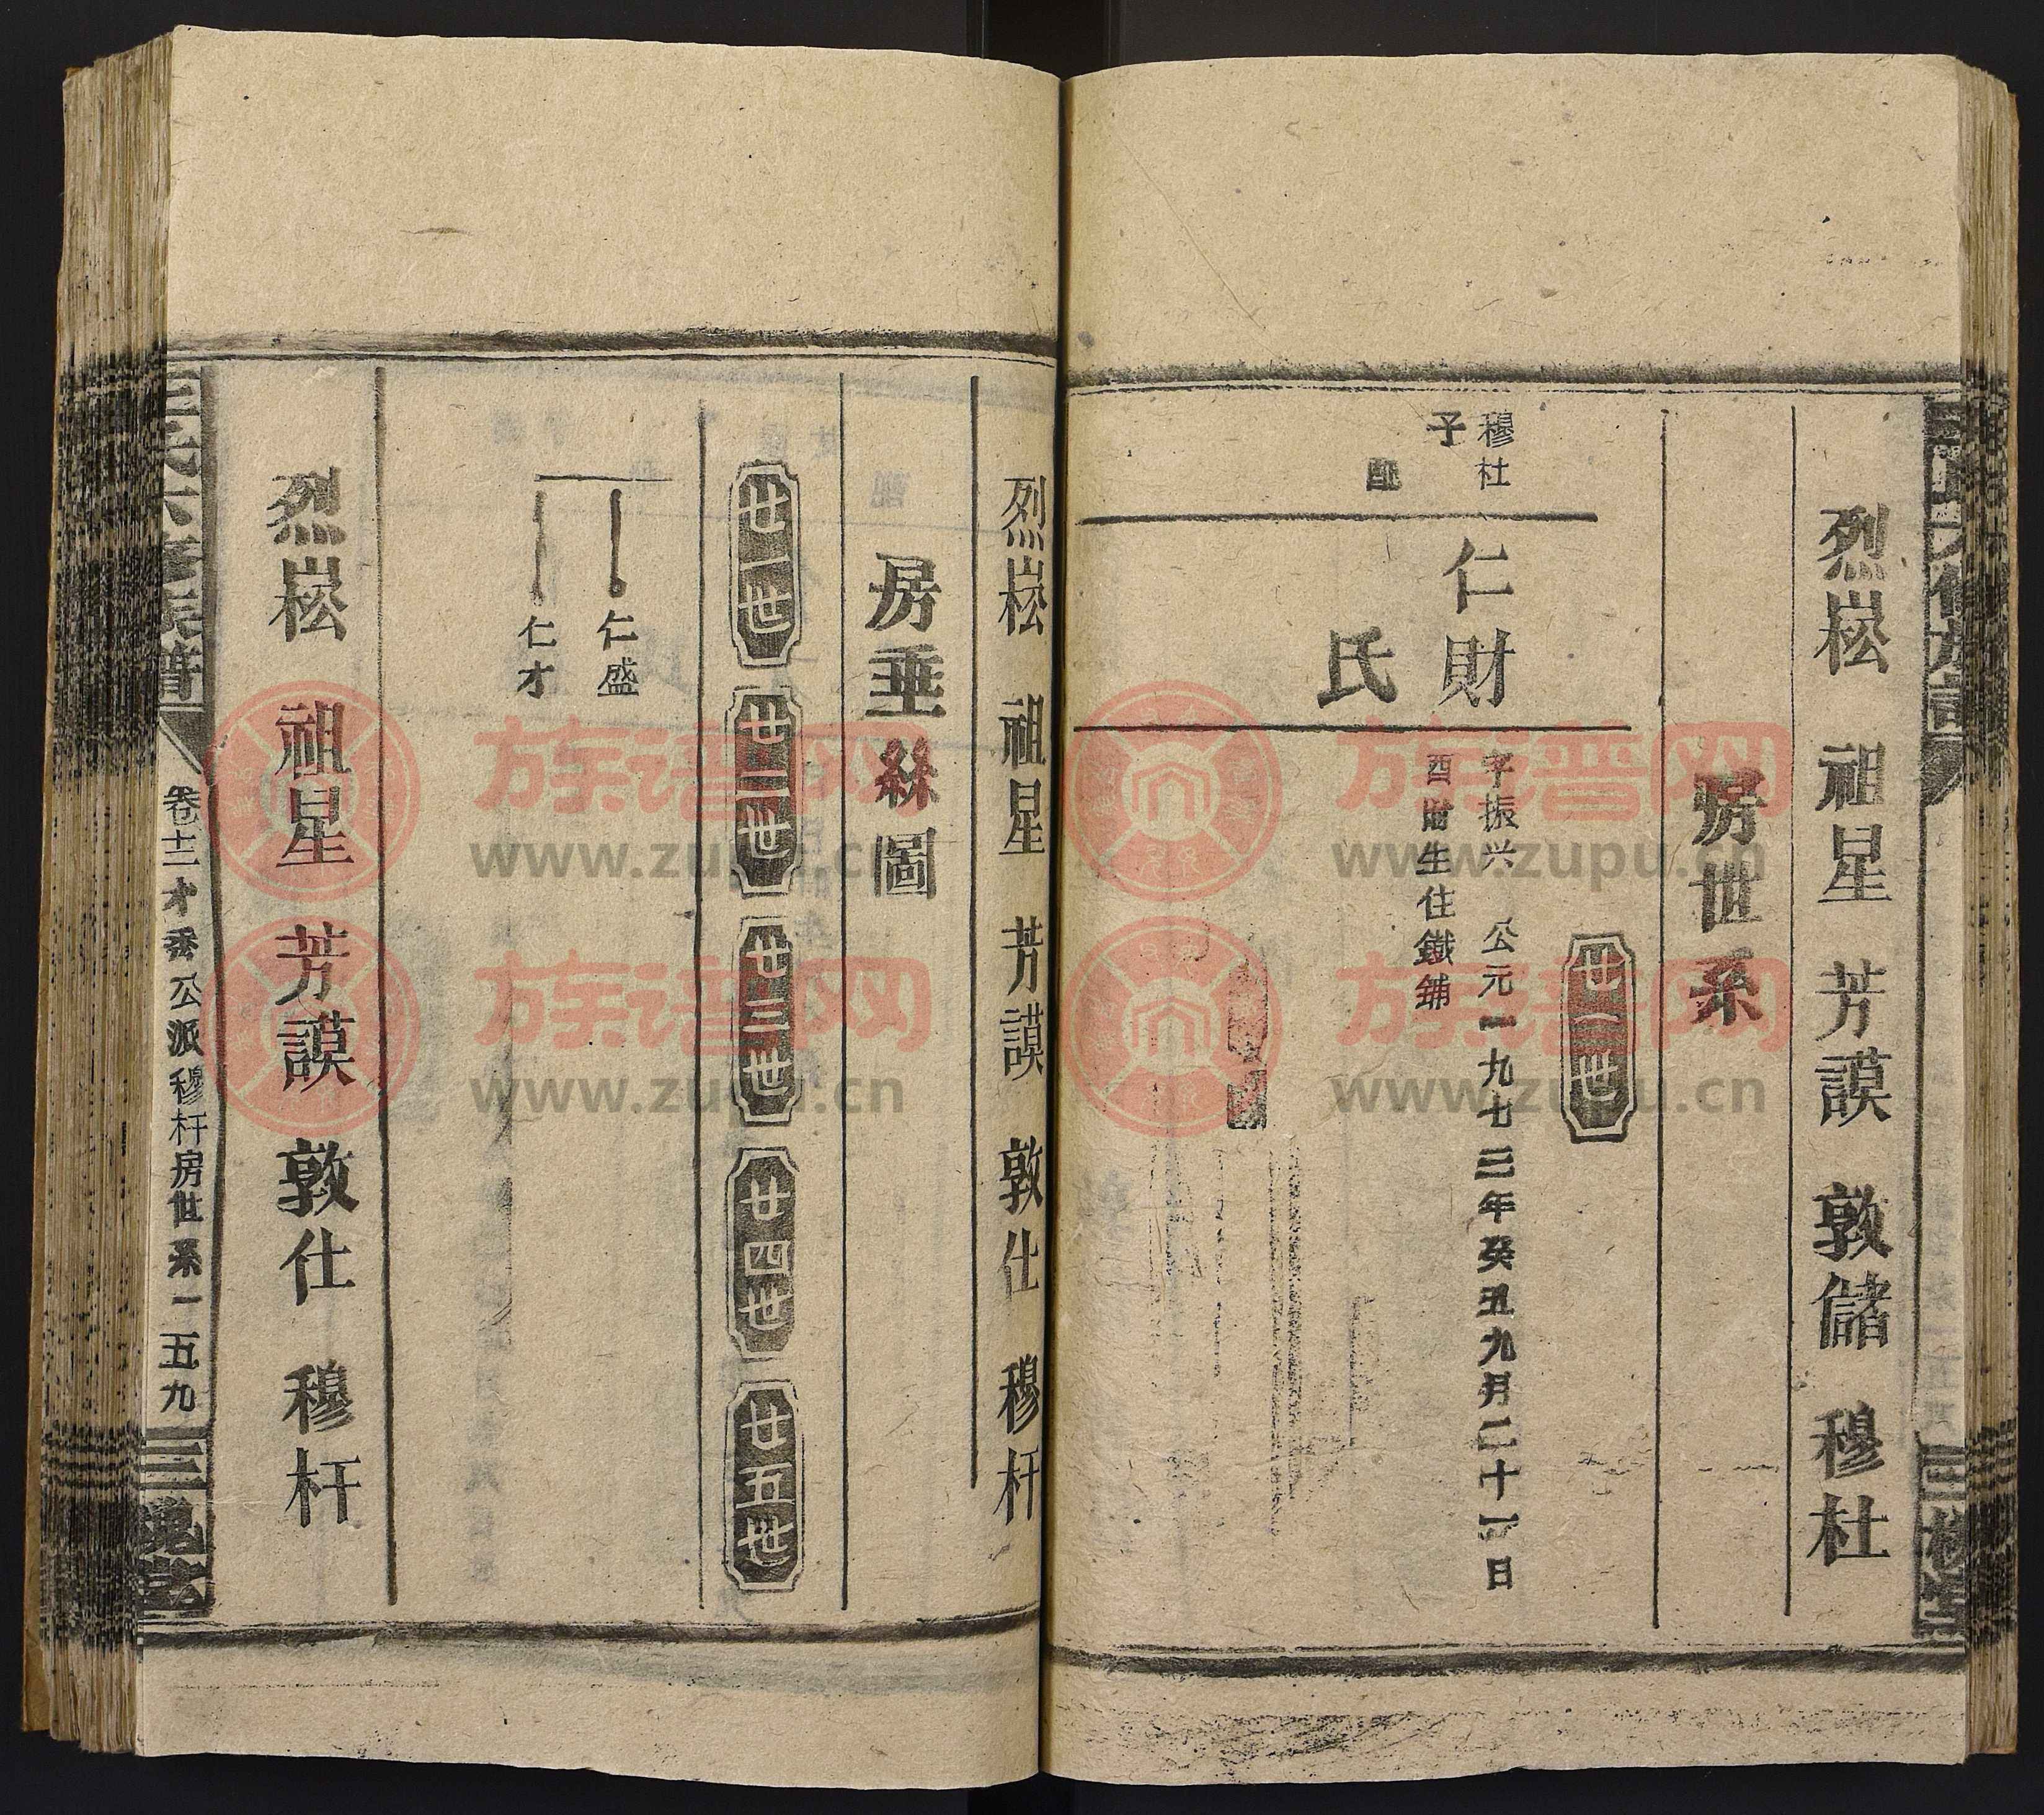 烈崧 祖星 芳謨 敦儲 穆杜
房世系
廿一世
穆杜
子
仁財
字振兴 公元一九七三年癸丑九月二十一日
酉時生住鐵鋪
配
氏
烈崧 祖星 芳謨 敦仕 穆杆
房垂絲圖
廿一世
廿二世
廿三世
廿四世
廿五世
仁盛
仁才
烈崧 祖星 芳謨 敦仕 穆杆
氏六修族譜
卷十二 才秀公派穆杆房世系一五九
三槐堂
族谱网
www.zupu.cn
族谱网
www.zupu.cn
族谱网
www.zupu.cn
族谱网
www.zupu.cn